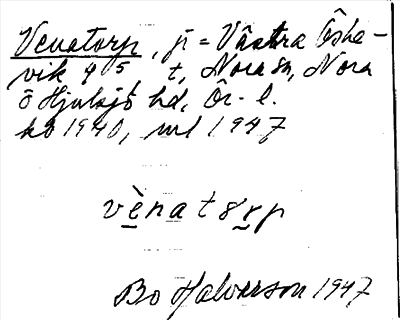 Venatorp, ji = Västra Öske-
vik 4 5 t, Nora sn, Nora
o Hjulsjö hd, Ör. l.
kb 1940, ml 1947
vènatrp
Bo Halvarson 1947